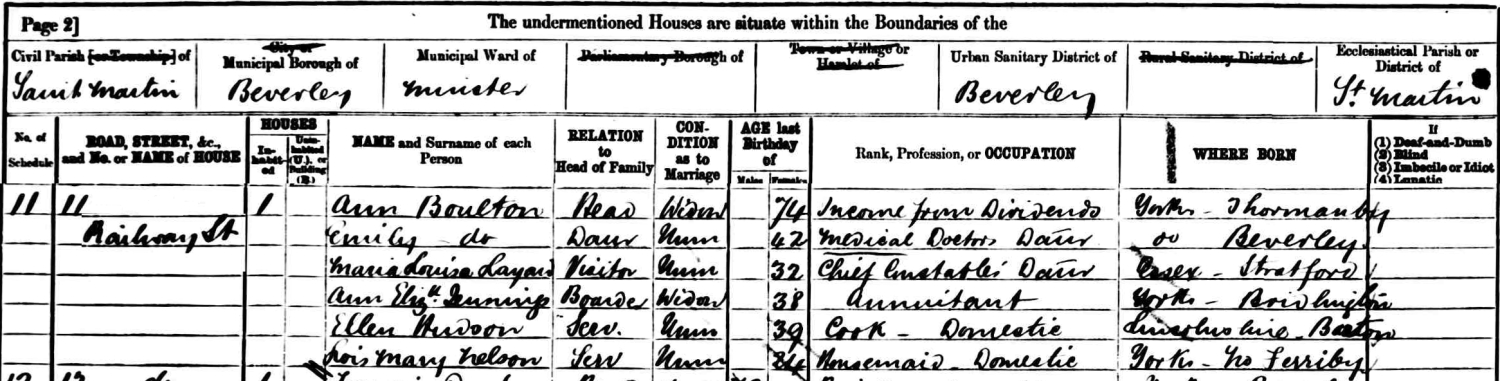 Page 2] The undermentioned Houses are situate within the Boundaries of the
Civil Parish [or Township] of City or Municipal Borough of Municipal Ward of Parliamentary Borough of Town or Village or Hamlet of Urban Sanitary District of Rural Sanitary District of Ecclesiastical Parish or District of
Saint Martin Beverley Minster Beverley St. Martin
No. of Schedule ROAD, STREET, &c., and No. or NAME of HOUSE HOUSES Inhabited Uninhabited (U.), or Building (B.) NAME and Surname of each Person RELATION to Head of Family CONDITION as to Marriage AGE last Birthday of Males Females Rank, Profession, or OCCUPATION WHERE BORN If (1) Deaf-and-Dumb (2) Blind (3) Imbecile or Idiot (4) Lunatic
11 11 1 Ann Boulton Head Widow 74 Income from Dividends Yorks - Thormanby
Railway St Emily do Daur Unm 42 Medical Doctors Daur do Beverley
Maria Louisa Layard Visitor Unm 32 Chief Constables Daur Essex - Stratford
Ann Elizth. Jennings Boarder Widow 38 Annuitant Yorks - Bridlington
Ellen Hudson Serv. Unm 39 Cook - Domestic Lincolnshire - Barton
Lois Mary Nelson Serv Unm 24 Housemaid - Domestic Yorks - No Ferriby